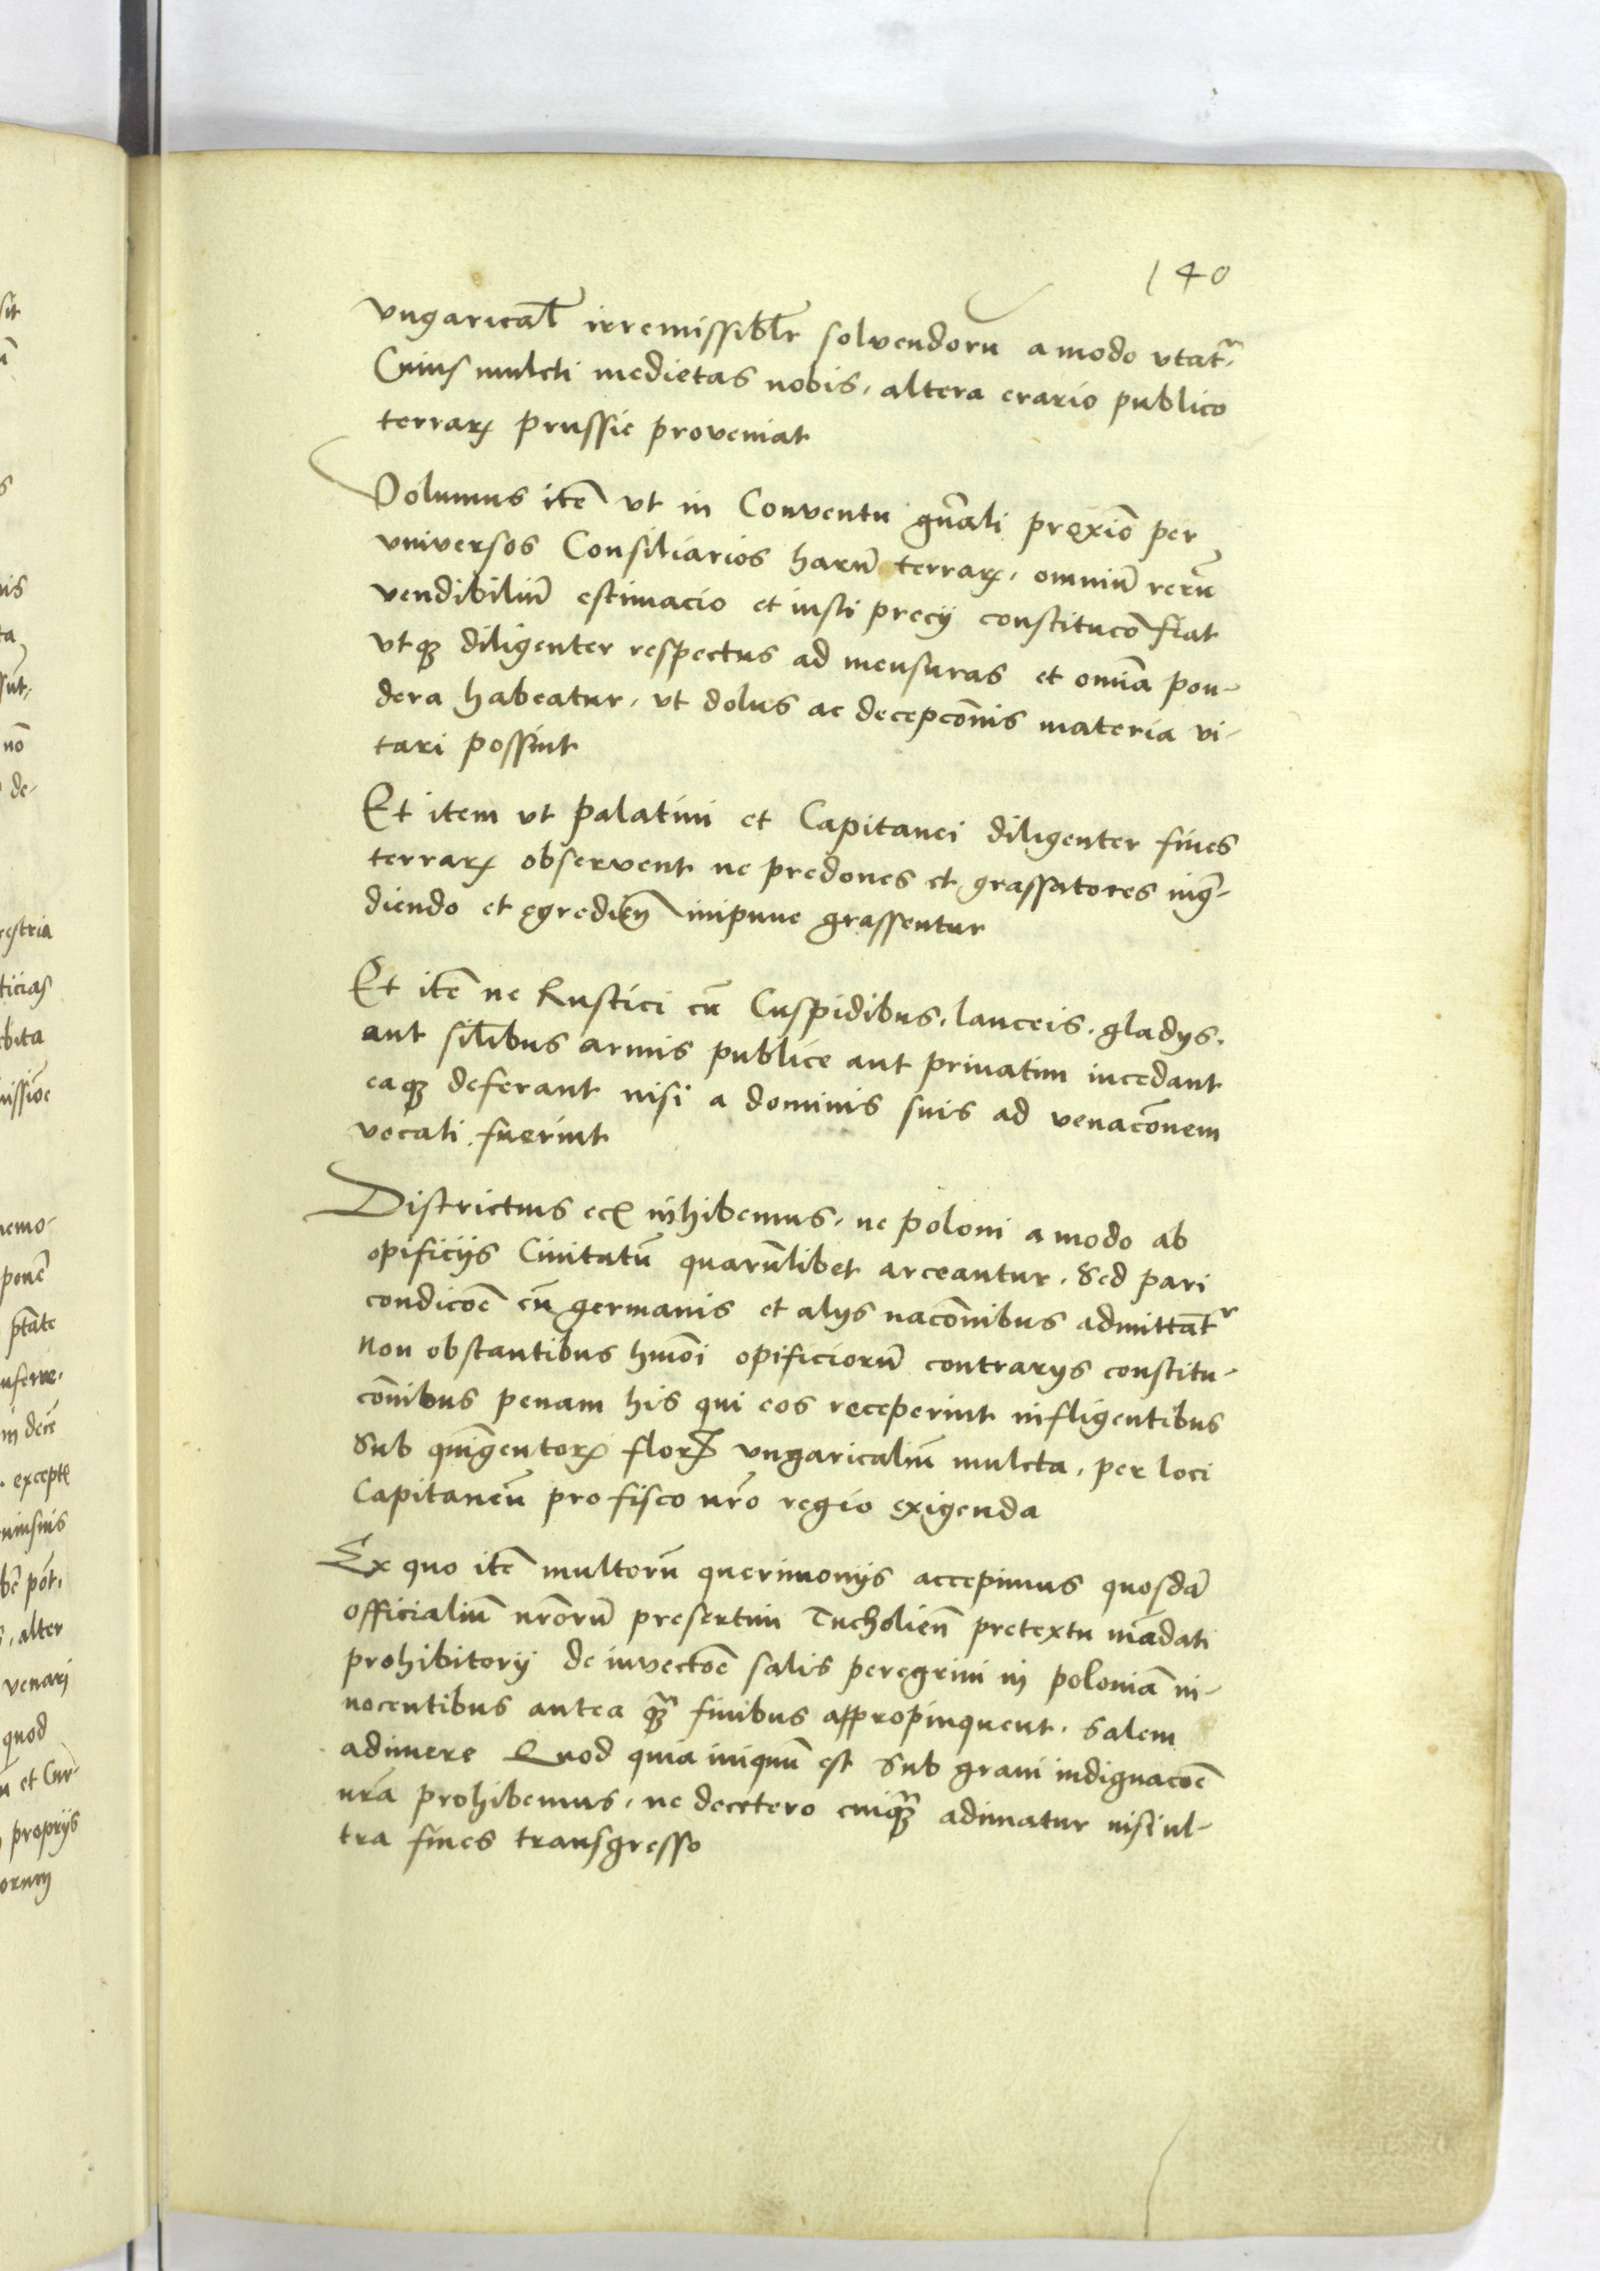 140
vngarical̄ irremissibl̄r solvendoru a modo vtat̄r
Cuius mulcti medietas nobis, altera erario publico
terrarꝫ prussie proveniat
Volumus itē vt in Conventu gn̄ali proxīo per
vniversos Consiliarios harū terrarꝫ, omniū rerū
vendibiliū estimacio et iusti precij constitucō fiat
vtqꝫ diligenter respectus ad mensuras et om̄ia pon-
dera habeatur, vt dolus ac decepcōnis materia vi-
tari possint
Et item vt palatini et Capitanei diligenter fines
terrarꝫ observent ne predones et grassatores inḡ-
diendo et egredien̄ impune grassentur
Et itē ne Rustici cū Cuspidibus, lanceis, gladys,
aut sil̄ibus armis publice aut priuatim incedant
eaqꝫ deferant nisi a dominis suis ad venacōnem
vocati fuerint
Districtius ec̄ inhibemus, ne poloni a modo ab
opificijs Ciuitatū quarūlibet arceantur, Sed pari
condicōe cū germanis et alijs nacōnibus admittāt̄r
Non obstantibus hm̄oi opificiorū contrarijs constitu-
cōnibus penam his qui eos receperint infligentibus
Sub quīngentorꝫ florꝫ vngaricaliū mulcta, per loci
Capitaneū pro fisco nr̄o regio exigenda
Ex quo itē multorū querimonijs accepimus quosdā
officialiū nr̄orū presertim Tucholien̄ pretextu mādati
prohibitorij de invectōe salis peregrini in poloniā in-
nocentibus antea qꝫ̄ finibus appropinquent, salem
adimere Quod quia iniquū est Sub graui indignacōe
nr̄a prohibemus, ne decetero cuiqꝫ̄ adimatur nisi ul-
tra fines transgresso